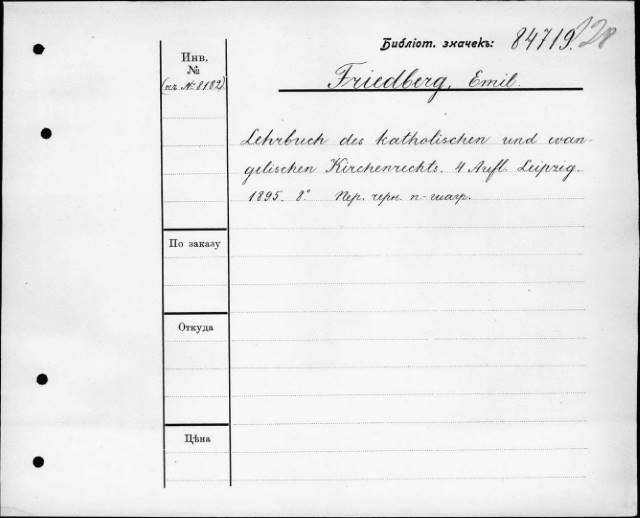 Библіот. значекъ: 84719. 128
Инв.
№
(къ № 8182)
Friedberg, Emil.
Lehrbuch des katholischen und evan-
gelischen Kirchenrechts. 4 Aufl. Leipzig.
1895. 8º. Пер. черн. п-шагр.
По заказу
Откуда
Цѣна